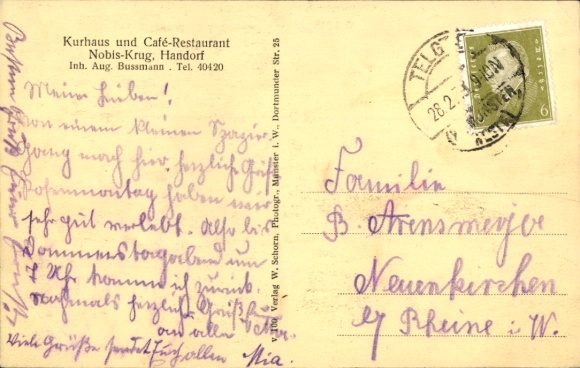 Kurhaus und Café-Restaurant
Nobis-Krug, Handorf
Inh. Aug. Bussmann . Tel. 40420
Meine Lieben!
Von einem kleinen Spazier-
gang nach hier, herzliche Grüße
Rosenmontag haben wir
sehr gut verlebt. Also bis
Donnerstagabend um
Uhr komm ich zurück.
nochmals herzl. Grüße
an alle
Viele Grüße sendet Euch allen Mia.
V. 100 Verlag W. Schorn, Photogr., Münster i. W., Dortmunder Str. 25
TELGTE
28.2.
MÜNSTER
6
Familie
B. Arensmeyer
Neuenkirchen
b/ Rheine i. W.